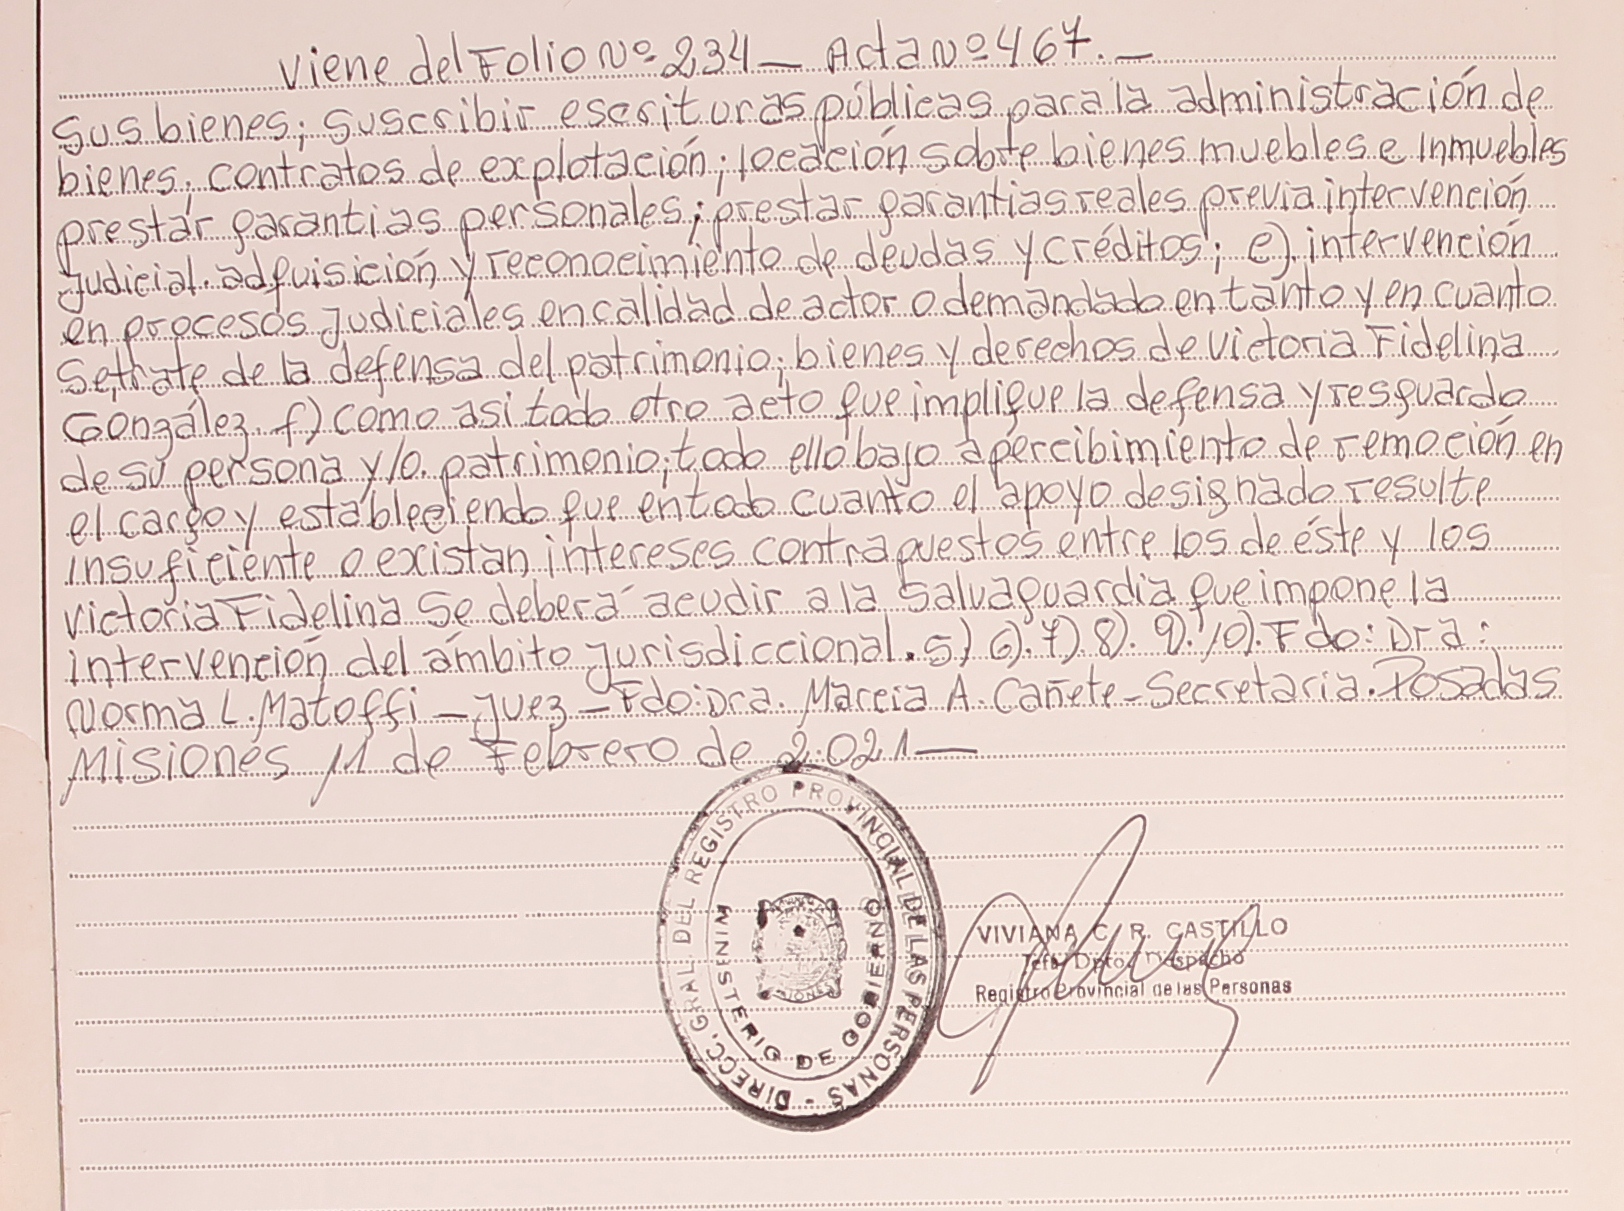 Viene del Folio Nº 234 — Acta Nº 467. —
Sus bienes; suscribir escrituras públicas para la administración de
bienes; contratos de explotación; locación sobre bienes muebles e inmuebles
prestar garantias personales; prestar garantias reales previa intervención
judicial. adquisición y reconocimiento de deudas y créditos; e) intervención
en procesos judiciales en calidad de actor o demandado en tanto y en cuanto
Se trate de la defensa del patrimonio; bienes y derechos de Victoria Fidelina
González. f) como asi todo otro acto que implique la defensa y resguardo
de su persona y/o. patrimonio; todo ello bajo apercibimiento de remoción en
el cargo y estableciendo que en todo cuanto el apoyo designado resulte
insuficiente o existan intereses contrapuestos entre los de éste y los
Victoria Fidelina Se deberá acudir a la Salvaguardia que impone la
intervención del ámbito jurisdiccional. 5) 6). 7) 8). 9). 10). Fdo: Dra:
Norma L. Matoffi — Juez — Fdo: Dra. Marcia A. Cañete — Secretaria. Posadas
Misiones 11 de Febrero de 2.021 —
DIRECC. GRAL. DEL REGISTRO PROVINCIAL DE LAS PERSONAS -
MINISTERIO DE GOBIERNO
VIVIANA C. R. CASTILLO
Jefa Dpto. Despacho
Registro Provincial de las Personas